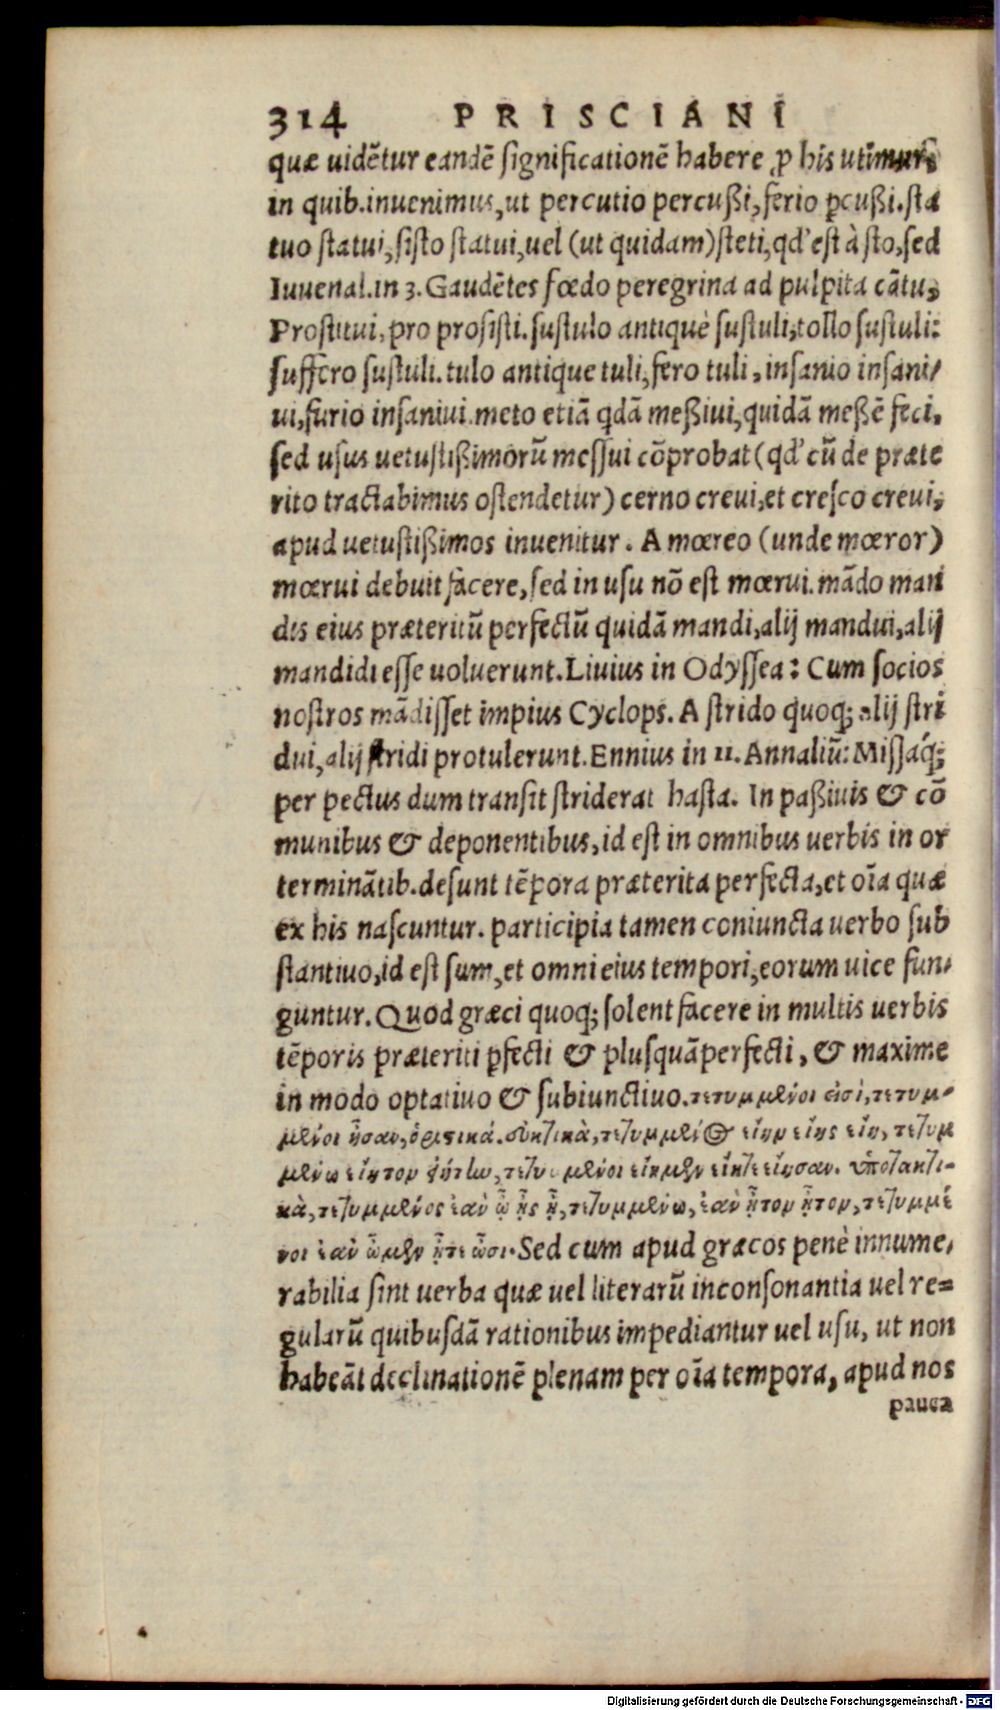 314 PRISCIANI
quæ uidētur eandē significationē habere ꝓ his utimur,
in quib.inuenimus,ut percutio percußi,ferio ꝑcußi.sta
tuo statui,sisto statui,uel (ut quidam)steti,qđ est à sto,sed
Iuuenal.in 3.Gaudētes fœdo peregrina ad pulpita cātu,
Prostitui,pro prosisti.sustulo antiquè sustuli,tollo sustuli:
suffero sustuli.tulo antique tuli,fero tuli,insanio insani/
ui,furio insaniui.meto etiā qdā meßiui,quidā meßē feci,
sed usus uetustißimorū messui cōprobat(qđ cū de præte
rito tractabimus ostendetur) cerno creui,et cresco creui,
apud uetustißimos inuenitur. A mœreo (unde mœror)
mœrui debuit facere,sed in usu nō est mœrui.mādo man
dis eius præteritū perfectū quidā mandi,alij mandui,alij
mandidi esse uoluerunt.Liuius in Odyssea: Cum socios
nostros mādisset impius Cyclops. A strido quoq; alij stri
dui,alij stridi protulerunt.Ennius in 11.Annaliū:Missáq;
per pectus dum transit striderat hasta. In paßiuis & cō
munibus & deponentibus,id est in omnibus uerbis in or
terminātib.desunt tēpora præterita perfecta,et oīa quæ
ex his nascuntur. participia tamen coniuncta uerbo sub
stantiuo,id est sum,et omni eius tempori,eorum uice fun/
guntur.Quod græci quoq; solent facere in multis uerbis
tēporis præteriti ꝑfecti & plusquāperfecti, & maxime
in modo optatiuo & subiunctiuo.τετυμμένοι εἰσὶ,τετυμ-
μένοι ἦσαν,ὁριστικά.εὐκτικὰ,τετυμμένος εἴην εἴης εἴη,τετυμ
μένω εἴητον εἰήτην,τετυμμένοι εἴημεν εἴητε εἴησαν. ὑποτακτι-
κὰ,τετυμμένος ἐὰν ὦ ᾖς ᾖ,τετυμμένω,ἐὰν ἦτον ἦτον,τετυμμέ
νοι ἐὰν ὦμεν ἦτε ὦσι.Sed cum apud græcos penè innume/
rabilia sint uerba quæ uel literarū inconsonantia uel re=
gularū quibusdā rationibus impediantur uel usu, ut non
habeāt declinationē plenam per oīa tempora, apud nos
pauca
Digitalisierung gefördert durch die Deutsche Forschungsgemeinschaft - DFG